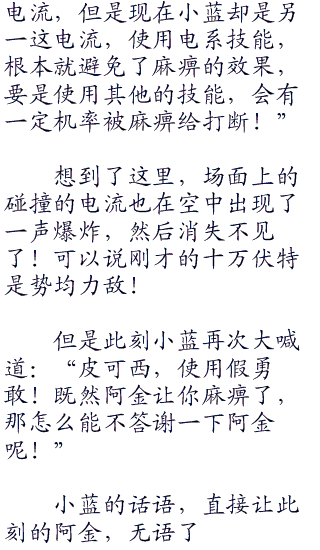 电流，但是现在小蓝却是另
一这电流，使用电系技能，
根本就避免了麻痹的效果，
要是使用其他的技能，会有
一定机率被麻痹给打断！”
想到了这里，场面上的
碰撞的电流也在空中出现了
一声爆炸，然后消失不见
了！可以说刚才的十万伏特
是势均力敌！
但是此刻小蓝再次大喊
道：“皮可西，使用假勇
敢！既然阿金让你麻痹了，
那怎么能不答谢一下阿金
呢！”
小蓝的话语，直接让此
刻的阿金，无语了